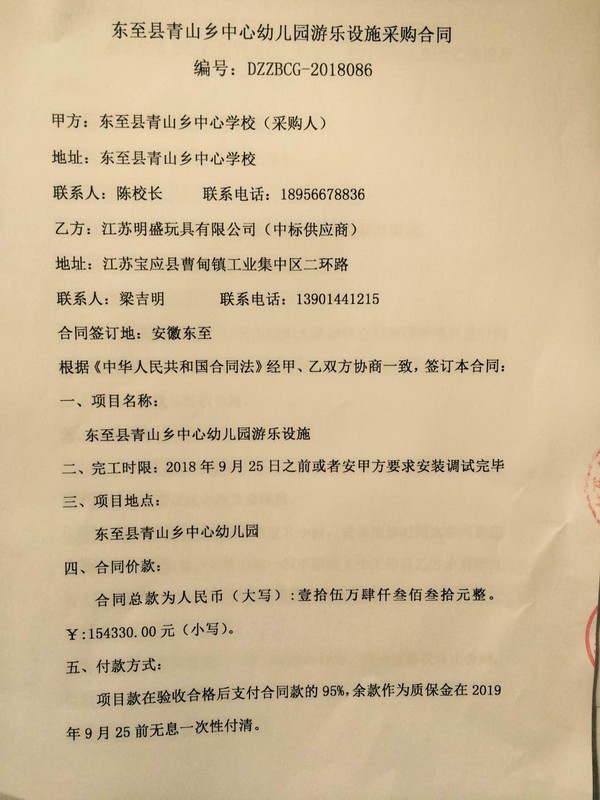 东至县青山乡中心幼儿园游乐设施采购合同
编号：DZZBCG-2018086
甲方：东至县青山乡中心学校（采购人）
地址：东至县青山乡中心学校
联系人：陈校长 联系电话：18956678836
乙方：江苏明盛玩具有限公司（中标供应商）
地址：江苏宝应县曹甸镇工业集中区二环路
联系人：梁吉明 联系电话：13901441215
合同签订地：安徽东至
根据《中华人民共和国合同法》经甲、乙双方协商一致，签订本合同：
一、项目名称：
东至县青山乡中心幼儿园游乐设施
二、完工时限：2018年9月25日之前或者安甲方要求安装调试完毕
三、项目地点：
东至县青山乡中心幼儿园
四、合同价款：
合同总款为人民币（大写）:壹拾伍万肆仟叁佰叁拾元整。
￥:154330.00元（小写）。
五、付款方式：
项目款在验收合格后支付合同款的95%,余款作为质保金在2019
年9月25前无息一次性付清。